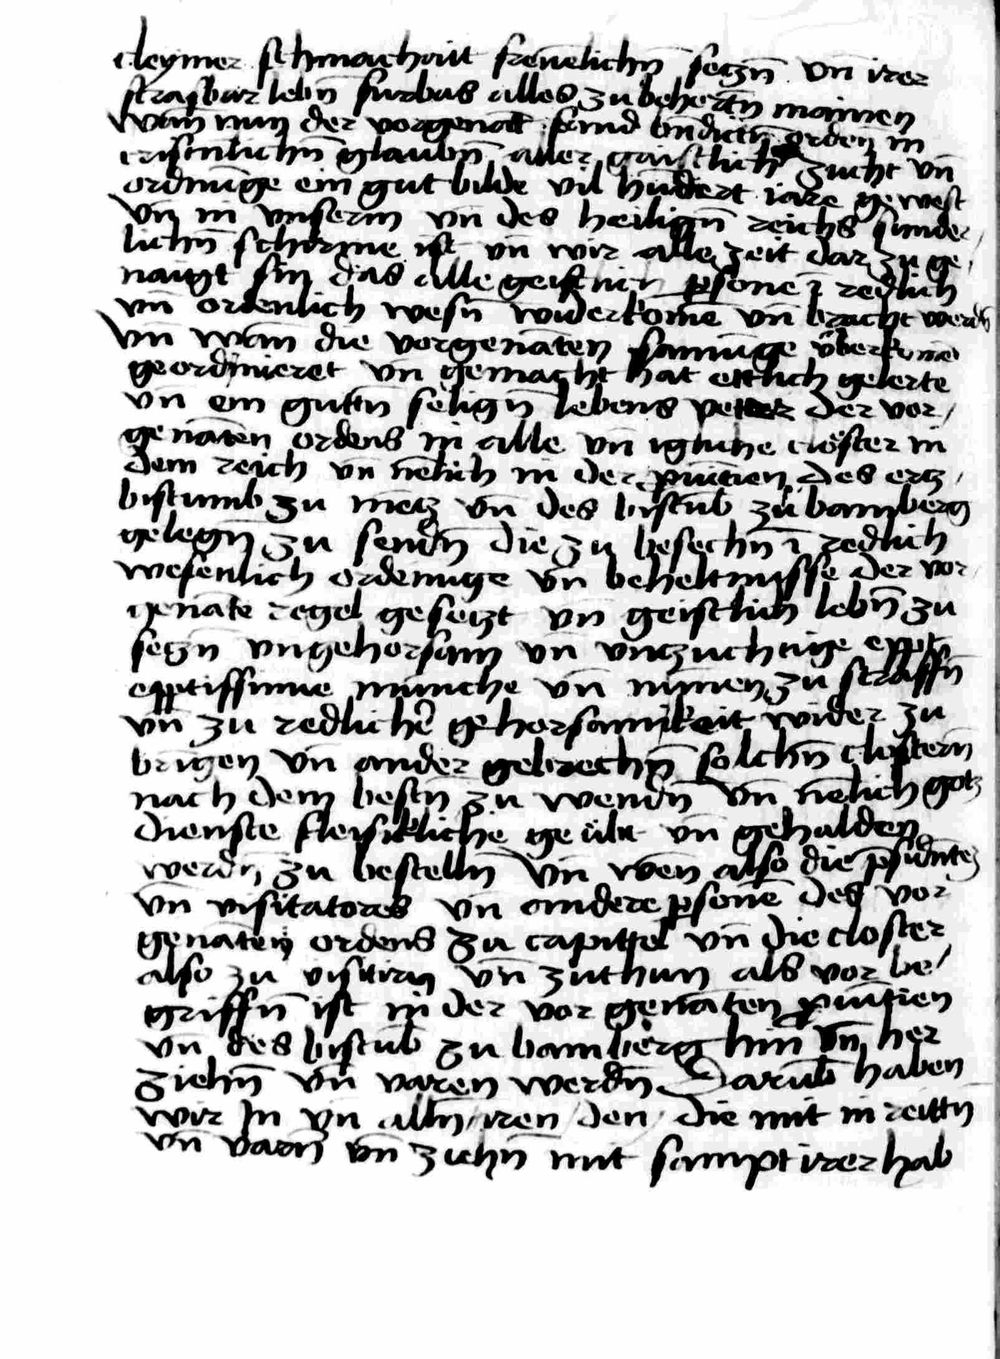 cleyner schmacheitt frevelichn̄ seczn̄ vn̄ irer
strasbar lebn̄ furbas alles zu behertn̄ mainen
Wan̄ nun der vorgenāt sand bn̄dictn̄ orden in
cristenlichn̄ glaubn̄ aller gaistlicher zucht vn̄
ordnūge ein gut bilde vil hūdert iare gewest
Vn̄ in vnserm vn̄ des heilign̄ reichs sunder
lichn̄ schirme ist vn̄ wir alle zeit dar zu ge /
naigt sin das alle geistlich p̄sone ī redlich
vn̄ ordenlich wesn̄ widerkomē vn̄ bracht werdn̄
Vn̄ wan̄ die vorgenāten samūge vberkomē
geordinieret vn̄ gemacht hat ettlich gelerte
vn̄ ein guttn̄ selign̄ lebens vetter der vor /
genāten ordens in alle vn̄ igliche clöster in
dem reich vn̄ nēlich in der p̄uincien des ercz /
bistumb zu mēcz vn̄ des bistūb zu bamberg
gelegn̄ zu sendn̄ die zu besechn̄ ī redlich
wesenlich ordenūge vn̄ beheltnisse der vor /
genāte regel geseczt vn̄ geistlich lebn̄ zu
seczn̄ vngehorsam vn̄ vnczuchtige eppt
epptissinne münche vn̄ nūnen zu straffn̄
vn̄ zu redlicher gehorsamkeit wider zu
brīgen vn̄ ander gebrechn̄ solchn̄ clostern̄
nach dem bestn̄ zu wendn̄ vn̄ nēlich gotz
dienste fleisikliche geübt vn̄ gehalden
werdn̄ zu bestelln̄ Vn̄ wen also die p̄sidn̄tez
vn̄ visitatores vn̄ andere p̄sonē des vor
genāten ordens zu capittel vn̄ die closter
also zu visitirn vn̄ zuthun als vor be /
griffn̄ ist in der vor genāten p̄uincien
vn̄ des bistūb zu bamberg hin vn̄ her
ziehn̄ vn̄ varen werdn̄ Darūb haben
wir In vn̄ alln̄ iren / den / die mit in reittn̄
vn̄ varn̄ vn̄ zichn̄ mit sampt irer hab